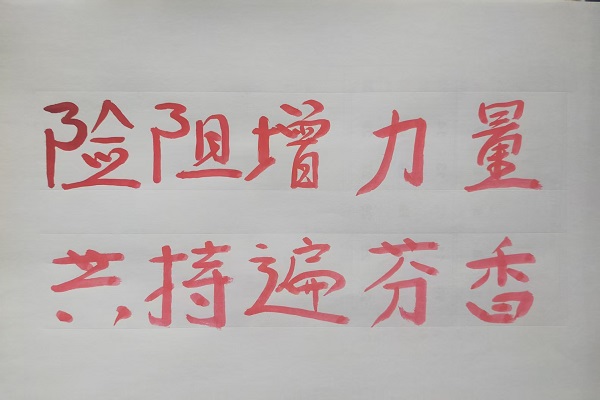 险阻增力量
共持遍芬香